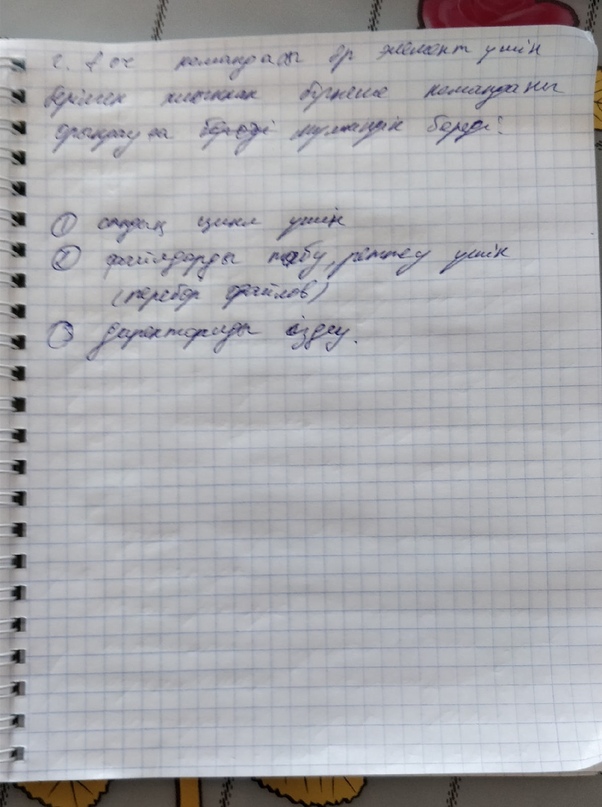 командасы әр элемент үшін
берілген бірнеше команданы
орындауға береді мүмкіндік береді:
① сандық цикл үшін
② файлдарды табу, реттеу үшін
(перебор файлов)
③ директорияды іздеу.